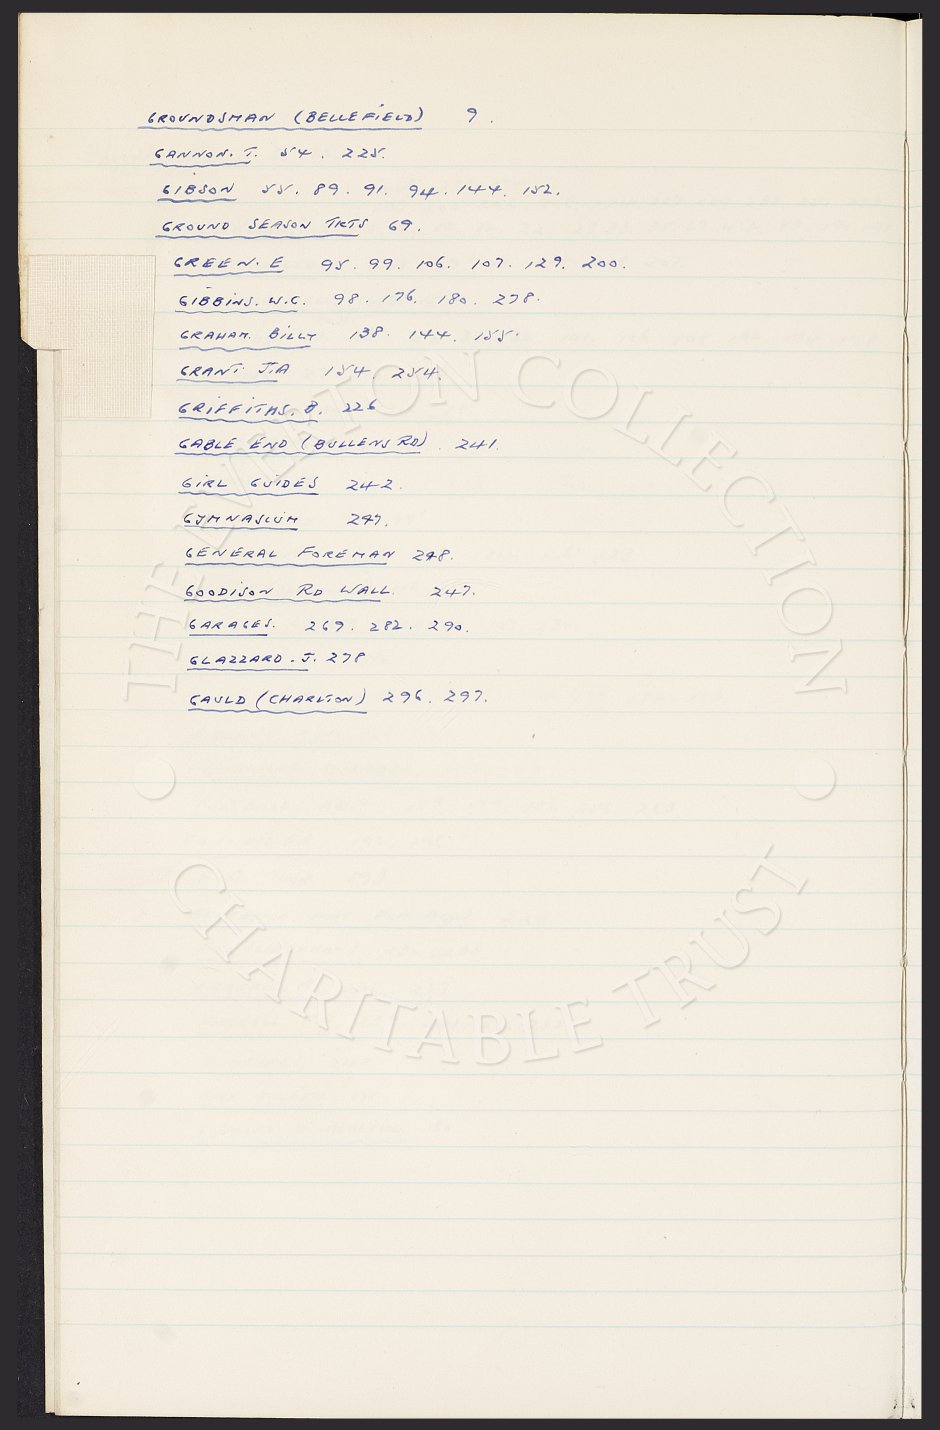 GROUNDSMAN (BELLEFIELD) 9.
GANNON. T. 54. 225.
GIBSON 55. 89. 91. 94. 144. 152.
GROUND SEASON TKTS 69.
GREEN. E 95. 99. 106. 107. 129. 200.
GIBBINS. W.C. 98. 176. 180. 278.
GRAHAM. BILLY 138. 144. 155.
GRANT J.A 154. 254.
GRIFFITHS. B. 226
GABLE END (BULLENS RD). 241.
GIRL GUIDES 242.
GYMNASIUM 247.
GENERAL FOREMAN 248.
GOODISON RD WALL. 247.
GARAGES. 269. 282. 290.
GLAZZARD. J. 278
GAULD (CHARLTON) 296. 297.
THE EVERTON COLLECTION
CHARITABLE TRUST